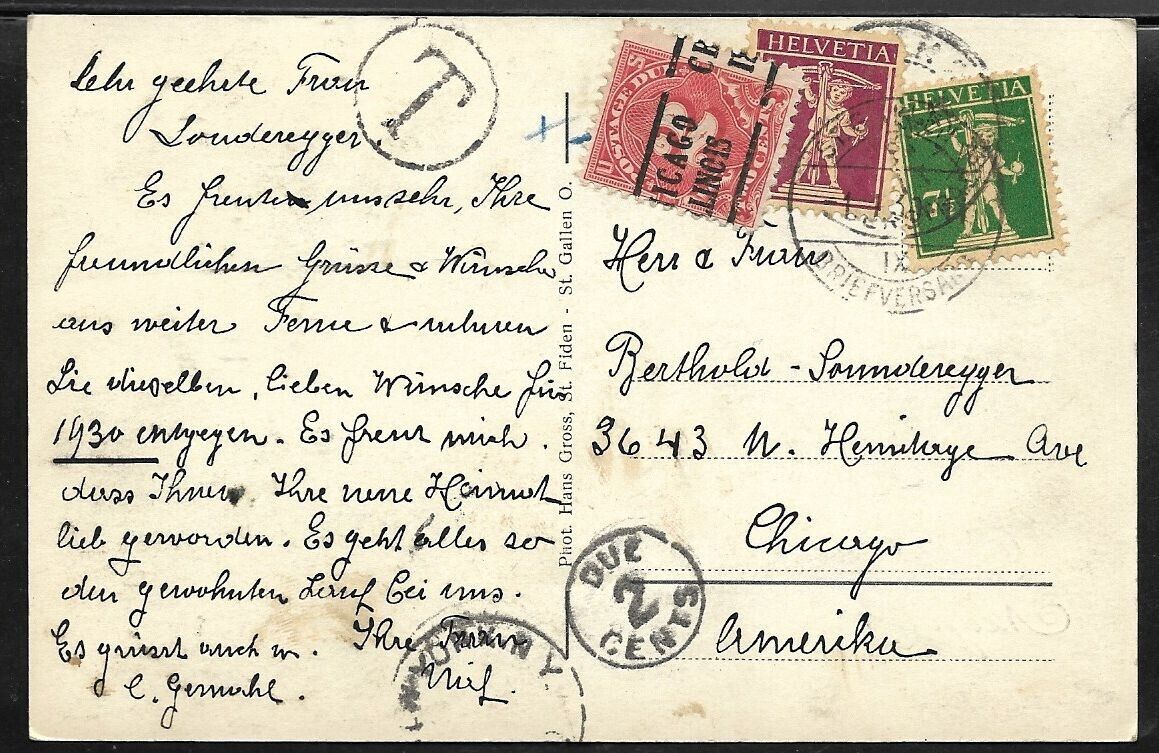 Sehr geehrte Frau
Sonderegger.
Es freute uns sehr, Ihre
freundlichen Grüsse & Wünsche
aus weiter Ferne & nehmen
Sie dieselben, lieben Wünsche für
1930 entgegen. Es freut mich.
dass Ihnen Ihre neue Heimat
lieb geworden. Es geht alles so
den gewohnten Lauf bei uns.
Es grüsst auch m. Ihre Frau
l. Gemahl.
T
Phot. Hans Gross, St. Fiden - St. Gallen O.
POSTAGE DUE
2
CENTS
ICAGO
LLINOIS
HELVETIA
HELVETIA
7½
BRIEFVERSAND
IX
Herr & Frau
Berthold - Sonnderegger
3643 N. Hermitage Ave
Chicago
Amerika
DUE
2
CENTS
YORK N Y